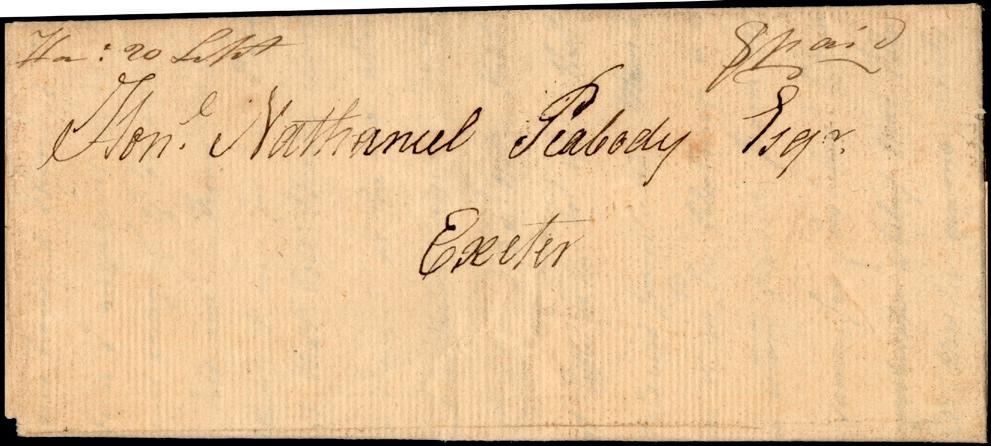 Ha : 20 Sept
8 paid
Hon.e Nathaniel Peabody Esqr.
Exeter